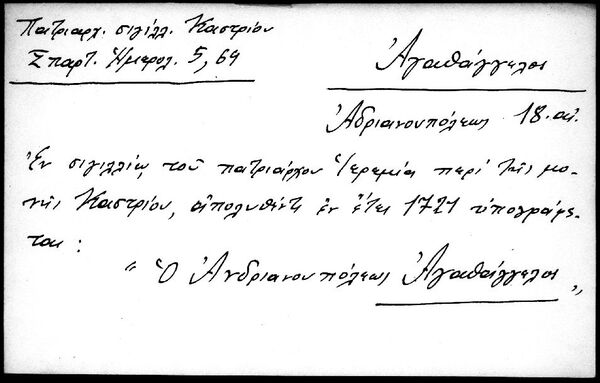 Πατριαρχ. σιγίλλ. Καστρίου
Σπαρτ. Ἡμερολ. 5, 64
Ἀγαθάγγελος
Ἀδριανουπόλεως 18. αἰ.
Ἐν σιγιλλίῳ τοῦ πατριάρχου Ἱερεμία περὶ τῆς μο-
νῆς Καστρίου, ἀπολυθέντι ἐν ἔτει 1721 ὑπογράφε-
ται :
" Ὁ Ἀνδριανουπόλεως Ἀγαθάγγελος "